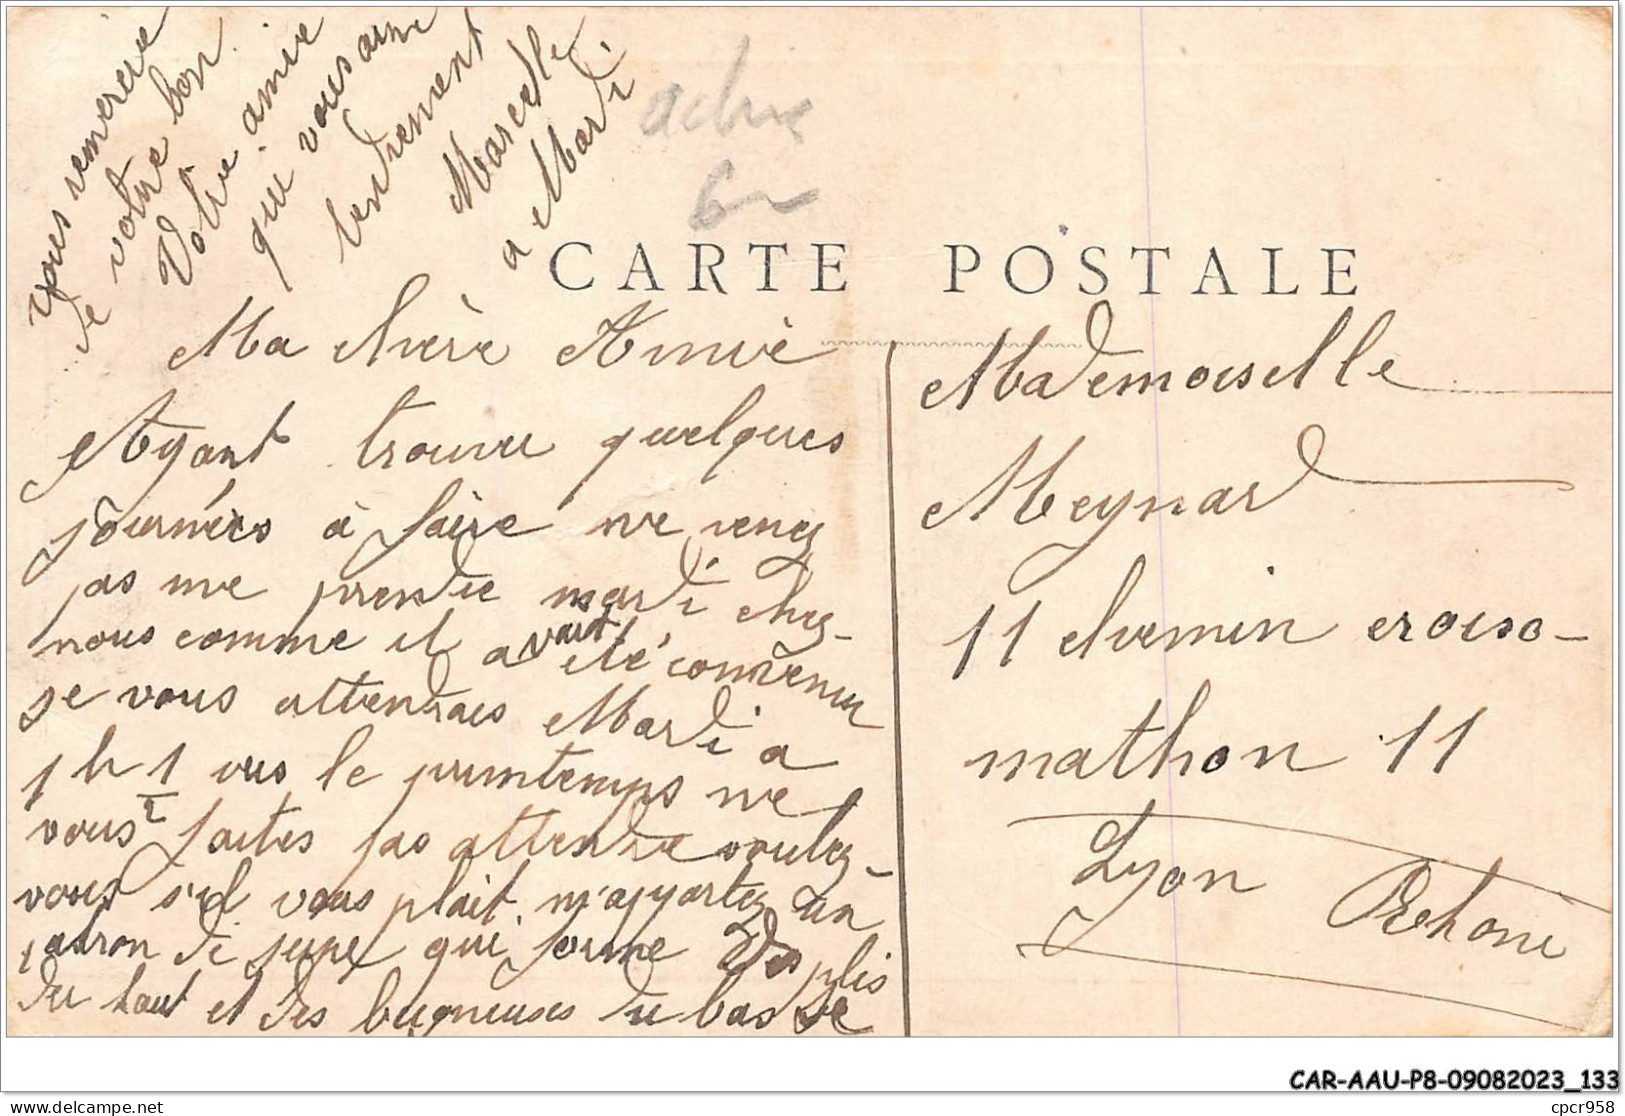 CARTE POSTALE
Ma chère Amie
Ayant trouvé quelques
journées à faire ne venez
pas me prendre mardi chez
nous comme il avait été convenu
je vous attendrais Mardi a
1 h 1/2 vers le printemps ne
vous faites pas attendre voulez-
vous s'il vous plait m'apportez un
patron de jupe qui forme des plis
du haut et des bugneuses du bas je
vous remercie
de votre bon
Votre amie
qui vous aime
tendrement
Marcelle
a Mardi
Mademoiselle
Meynard
11 chemin croiso-
mathon 11
Lyon
Rhone
CAR-AAU-P8-09082023_133
cpcr958